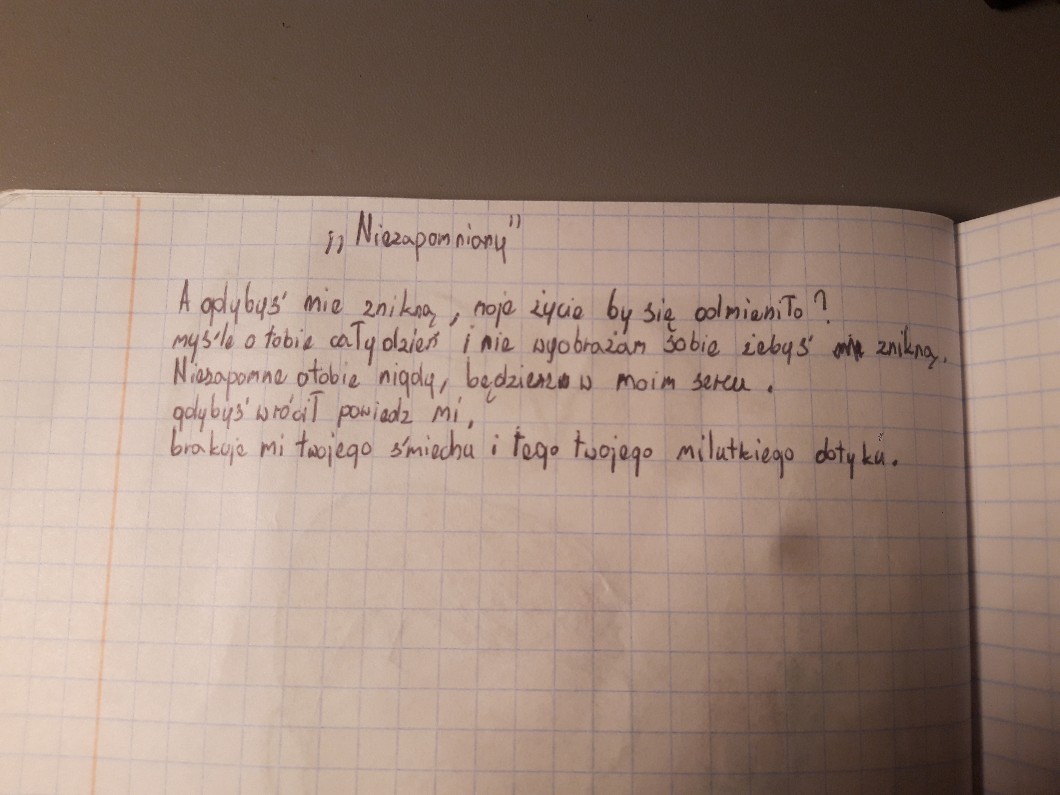 „Niezapomniany"
A gdybyś mie zniknął, moje życie by się odmieniło?
myśle o tobie cały dzień i nie wyobrażam sobie żebyś zniknął.
Niezapomne o tobie nigdy, będziesz w moim sercu.
gdybyś wrócił powiedz mi,
brakuje mi twojego śmiechu i tego twojego milutkiego dotyku.